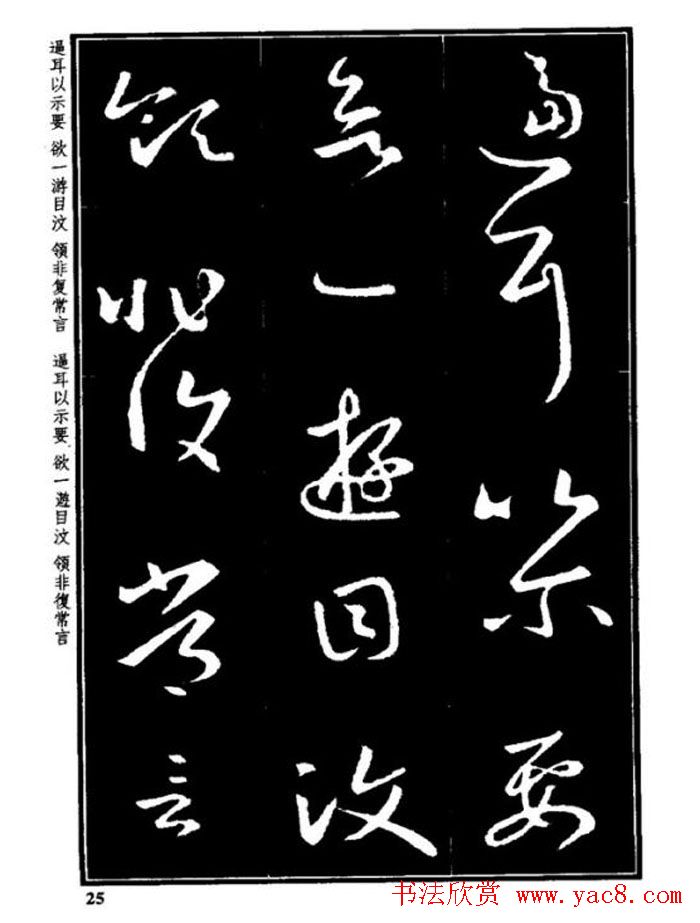 逼耳以示要
欲一遊目汶
領非復常言
逼耳以示要 欲一游目汶 领非复常言
逼耳以示要 欲一遊目汶 領非復常言
25
书法欣赏 www.yac8.com